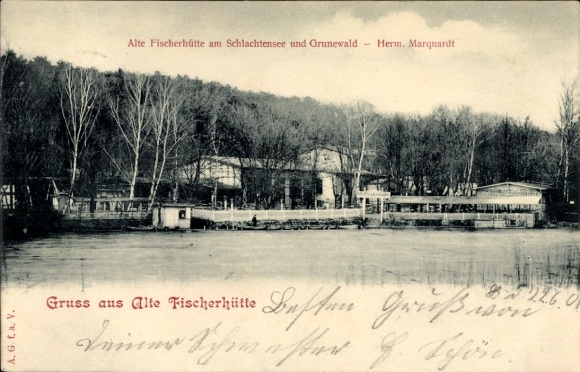 Alte Fischerhütte am Schlachtensee und Grunewald – Herm. Marquardt
Gruss aus Alte Fischerhütte
Besten Gruß von
Deiner Schwester Schön.
A. G. f. a. V.